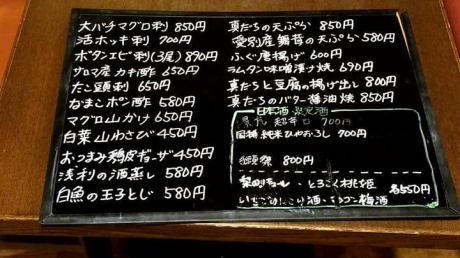 大バチマグロ刺 850円
活ホッキ刺 700円
ボタンエビ刺(3尾)890円
サロマ産カキ酢 650円
たこ頭刺 650円
なまこポン酢 580円
マグロ山かけ 650円
白菜山わさび 450円
おつまみ鶏皮ギョーザ 450円
浅利の酒蒸し 580円
白魚の玉子とじ 580円
真たちの天ぷら 850円
愛別産舞茸の天ぷら 580円
ふぐ唐揚げ 600円
ラムタン味噌漬け焼 690円
真たちと豆腐の揚げ出し 800円
真たちのバター醤油焼 850円
日本酒 限定酒
超辛口 900円
国稀 純米ひやおろし 900円
800円
とろこく桃姫
各550円
梅酒